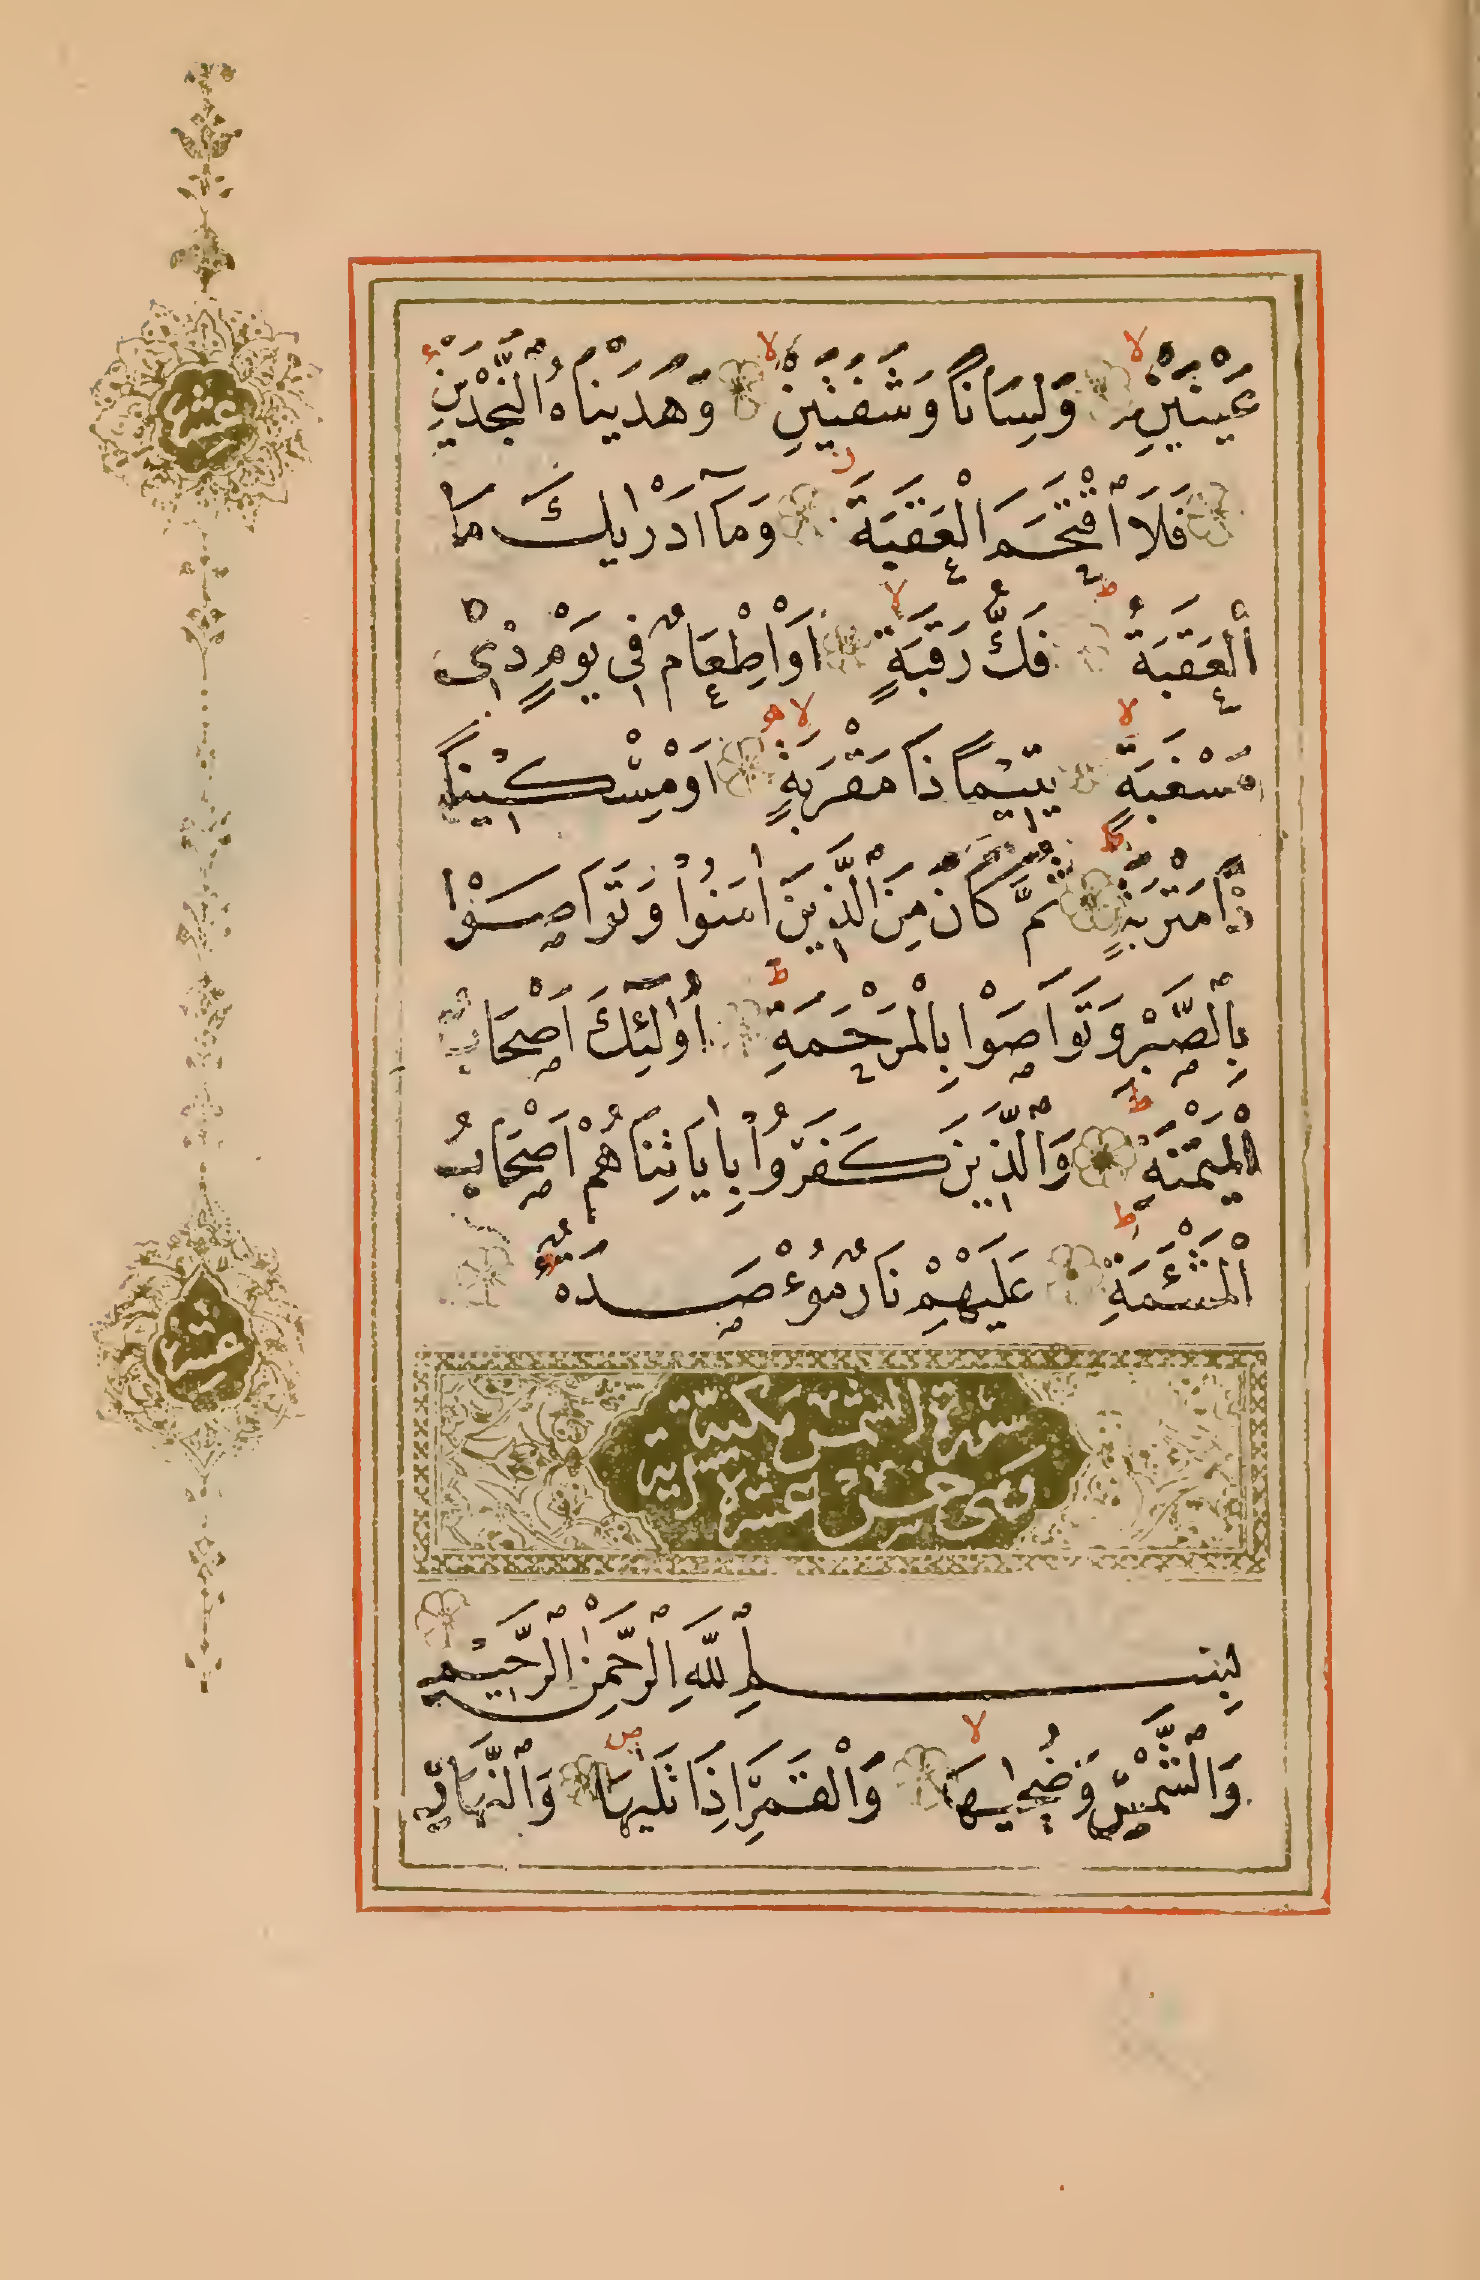 عَيْنَيْنِ وَلِسَانًا وَشَفَتَيْنِ وَهَدَيْنَاهُ ٱلنَّجْدَيْنِ
فَلَا ٱقْتَحَمَ الْعَقَبَةَ وَمَآ اَدْرٰيكَ مَا
ٱلْعَقَبَةُ فَكُّ رَقَبَةٍ اَوْ اِطْعَامٌ فِى يَوْمٍ ذِى
مَسْغَبَةٍ يَتِيمًا ذَا مَقْرَبَةٍ اَوْ مِسْكِينًا
ذَا مَتْرَبَةٍ ثُمَّ كَانَ مِنَ ٱلَّذِينَ اٰمَنُوا وَتَوَاصَوْا
بِٱلصَّبْرِ وَتَوَاصَوْا بِالْمَرْحَمَةِ اُولٰٓئِكَ اَصْحَابُ
الْمَيْمَنَةِ وَٱلَّذِينَ كَفَرُوا بِاٰيَاتِنَا هُمْ اَصْحَابُ
الْمَشْئَمَةِ عَلَيْهِمْ نَارٌ مُوءْصَدَةٌ
سورة الشمس مكية
وهى خمس عشرة اية
بِسْمِ ٱللّٰهِ ٱلرَّحْمٰنِ ٱلرَّحِيمِ
وَٱلشَّمْسِ وَضُحٰيهَا وَالْقَمَرِ اِذَا تَلٰيهَا وَٱلنَّهَارِ
عشر
عشر